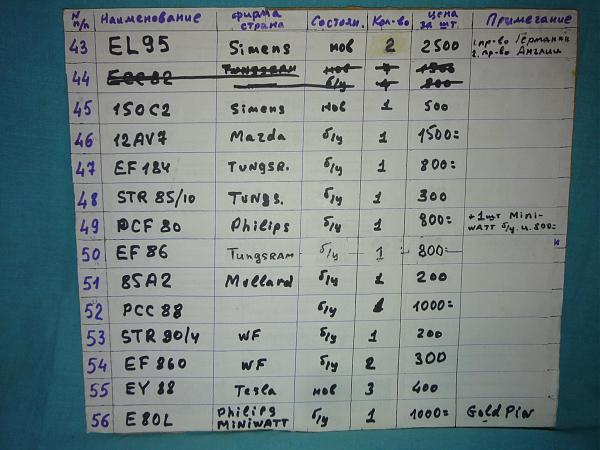 N п/п Наименование фирма страна Состоян. Кол-во цена за шт. Примечание
43 EL95 Simens нов 2 2500 1. пр-во Германия 2. пр-во Англии
44 ECC82 TUNGSRAM нов б/у 800
45 150C2 Simens нов 1 500
46 12AV7 Mazda б/у 1 1500=
47 EF184 TUNGSR. б/у 1 800=
48 STR 85/10 TUNGS. б/у 1 300
49 PCF 80 Philips б/у 1 800= +1шт Mini-WATT б/у. ц. 800=
50 EF 86 TUNGSRAM б/у 1 800=
51 85A2 Mullard б/у 1 200
52 PCC 88 б/у 1 1000=
53 STR 90/4 WF б/у 1 200
54 EF 860 WF б/у 2 300
55 EY 88 Tesla нов 3 400
56 E80L Philips MINIWATT б/у 1 1000= Gold Pin